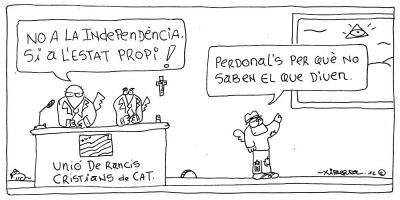 NO A LA INDEPENDÈNCIA.
Sí A L'ESTAT PROPI.!
PERDONAL'S PER QUÈ NO
SABEN EL QUE DIUEN.
UNIÓ DE RANCIS
CRISTIANS de CAT.